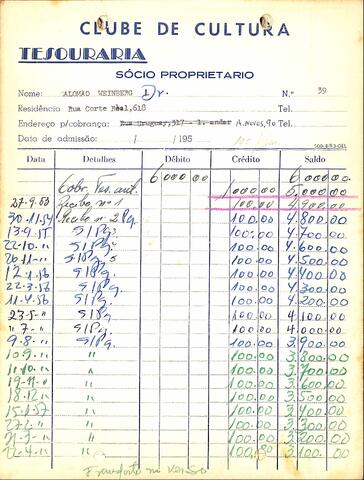 CLUBE DE CULTURA
TESOURARIA
SÓCIO PROPRIETARIO
Nome: ALOMÃO WEINBERG Dr. N.º 39
Residência Rua Corte Real,618 Tel.
Endereço p/cobrança: Rua Uruguay,317 - 1. andar A.neves,90 Tel.
Data de admissão: / / 195
Data Detalhes Débito Crédito Saldo
6000 00 6.000 00
Cobr. Tes. ant. 1,000 00 5,000 00
27-9.53 Recibo, nº 1 100,00 4,900 00
30.11.54 Recibo nº 2 Pg. 100.00 4.800.00
13-9.55 S/Pg. 100,00 4.700.00
22-10." S/Pg. 100.00 4.600.00
26-11-" S/Pg. 100.00 4.500.00
12.1.56 S/Pg. 100.00 4.400.00
22-3.56 S/Pg. 100.00 4.300.00
11-4.56 S/Pg. 100.00 4.200.00
23-5-" S/Pg. 100.00 4.100.00
"7-" S/Pg. 100.00 4.000.00
9-8-" S/Pg. 100.00 3.900.00
10-9-" " 100.00 3.800.00
11.10." " 100.00 3.700.00
19-11-" " 100.00 3.600.00
18.12." " 100.00 3.500.00
15.1.57 " 100.00 3.400.00
27.2." " 100.00 3.300.00
21-3-" " 100.00 3.200.00
12-4-" " 100.00 3.100.00